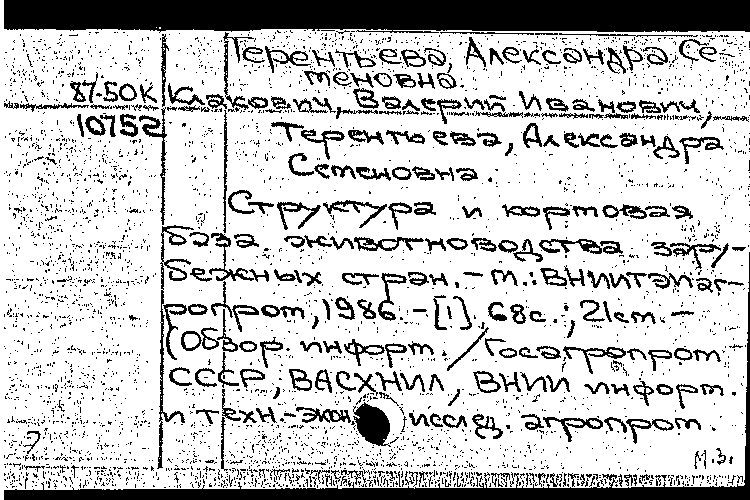 Терентьева, Александра Се-
меновна.
87-50К Клакович, Валерий Иванович,
10752 Терентьева, Александра
Семеновна.
Структура и кормовая
база животноводства зару-
бежных стран. - М.: ВНИИТЭИаг-
ропром, 1986. - [1], 68с.; 21см. -
(Обзор. информ. / Госагропром
СССР, ВАСХНИЛ, ВНИИ информ.
и техн.-экон исслед. агропром.
7
М.З.